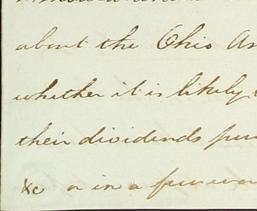 about the Ohio
whether it is likely
their dividends
&c or in a